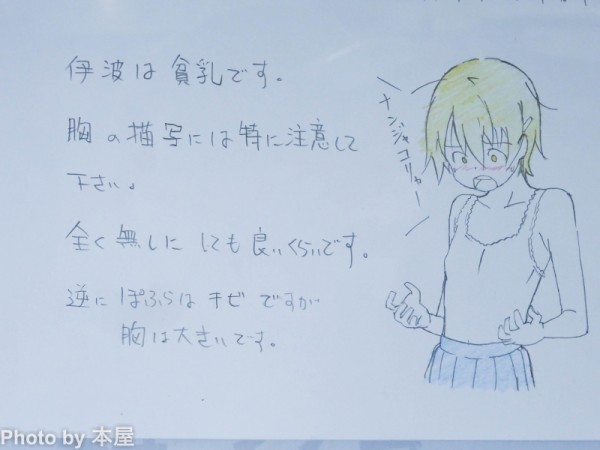 伊波は貧乳です。
胸の描写には特に注意して
下さい。
全く無しにしても良いくらいです。
逆にぽぷらはチビですが
胸は大きいです。
ナンジャコリャー
Photo by 本屋